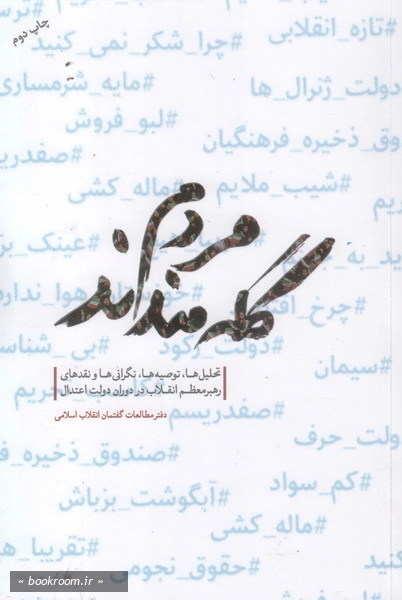 چاپ دوم
#تازه_انقلابی
#چرا_شکر_نمی_کنید
دولت_ژنرال_ها
#مایه_شرمساری
#لبو_فروش
وق_ذخیره_فرهنگیان
#صفدریس
#شیب_ملایم
#ماله_کشی
ریم
مردم
گله‌مندند
#عینک_بز
ید_به_
#چرخ_
هوا_ندارد
#دولت_رکود
#بی_شناس
#سیمان
تحلیل‌ها، توصیه‌ها، نگرانی‌ها و نقدهای
رهبر معظم انقلاب در دوران دولت اعتدال
دفتر مطالعات گفتمان انقلاب اسلامی
#صفدریسم
ولت_حرف
#صندوق_ذخیره_ف
#کم_سواد
#آبگوشت_بزباش
#ماله_کشی
#تقریبا_ه
#حقوق_نجومی
کنید
« bookroom.ir »